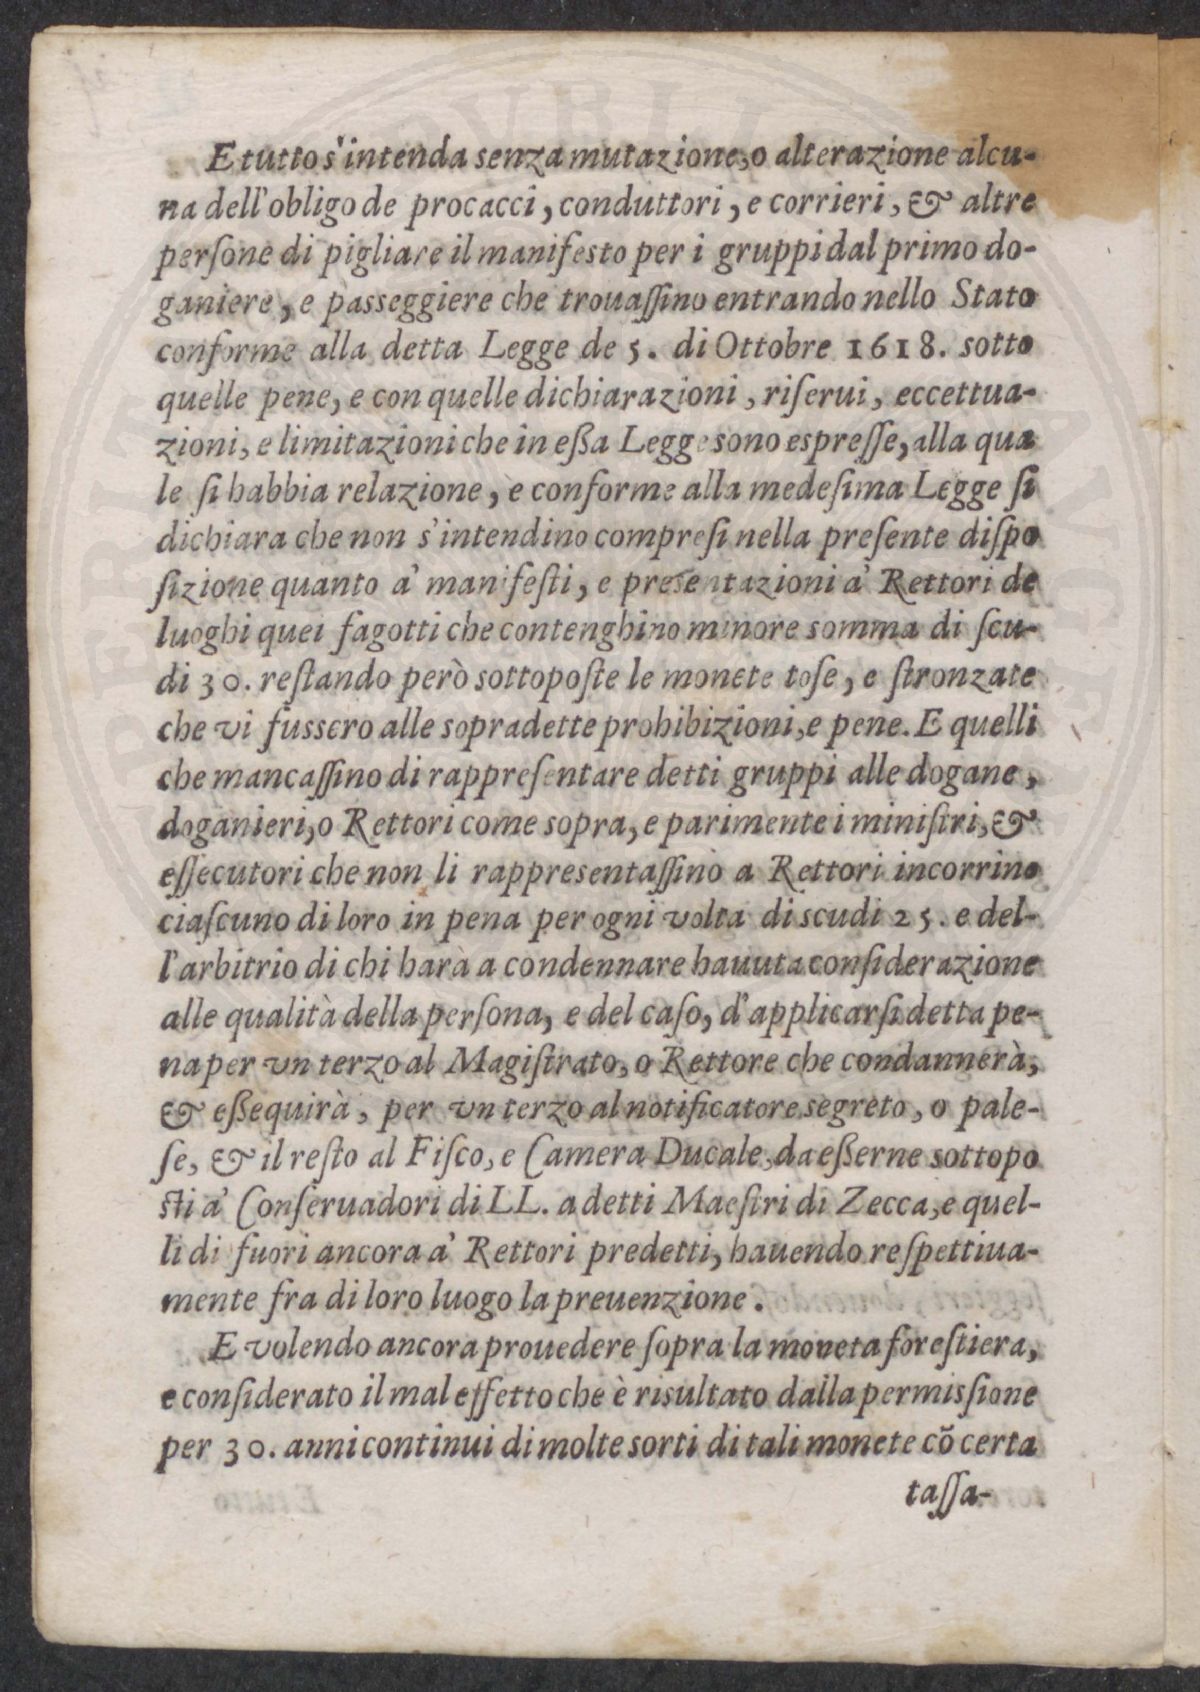 E tutto s'intenda senza mutazione, o alterazione alcu-
na dell'obligo de procacci, conduttori, e corrieri, & altre
perſone di pigliare il manifesto per i gruppi dal primo do-
ganiere, e passeggiere che trouaſſino entrando nello Stato
conforme alla detta Legge de 5. di Ottobre 1618. sotto
quelle pene, e con quelle dichiarazioni, riſerui, eccettua-
zioni, e limitazioni che in eßa Legge sono espreſſe, alla qua
le ſi habbia relazione, e conforme alla medeſima Legge ſi
dichiara che non s'intendino compreſi nella preſente diſpo
ſizione quanto a' manifeſti, e presentazioni a' Rettori de
luoghi quei fagotti che contenghino minore somma di ſcu-
di 30. reſtando però sottopoſte le monete toſe, e ſtronzate
che vi fussero alle sopradette prohibizioni, e pene. E quelli
che mancaſſino di rappreſentare detti gruppi alle dogane,
doganieri, o Rettori come sopra, e parimente i miniſtri, &
eſſecutori che non li rappresentaſſino a Rettori incorrino
ciaſcuno di loro in pena per ogni volta di scudi 25. e del-
l'arbitrio di chi harà a condennare hauuta conſiderazione
alle qualità della perſona, e del caſo, d'applicarſi detta pe-
na per vn terzo al Magiſtrato, o Rettore che condannerà,
& eßequirà, per vn terzo al notificatore segreto, o pale-
ſe, & il reſto al Fiſco, e Camera Ducale, da eßerne sottopo
ſti a' Conſeruadori di LL. a detti Maeſtri di Zecca, e quel-
li di fuori ancora a' Rettori predetti, hauendo reſpettiua-
mente fra di loro luogo la preuenzione.
E volendo ancora prouedere ſopra la moneta foreſtiera,
e conſiderato il mal effetto che è risultato dalla permisſione
per 30. anni continui di molte sorti di tali monete cõ certa
taſſa-